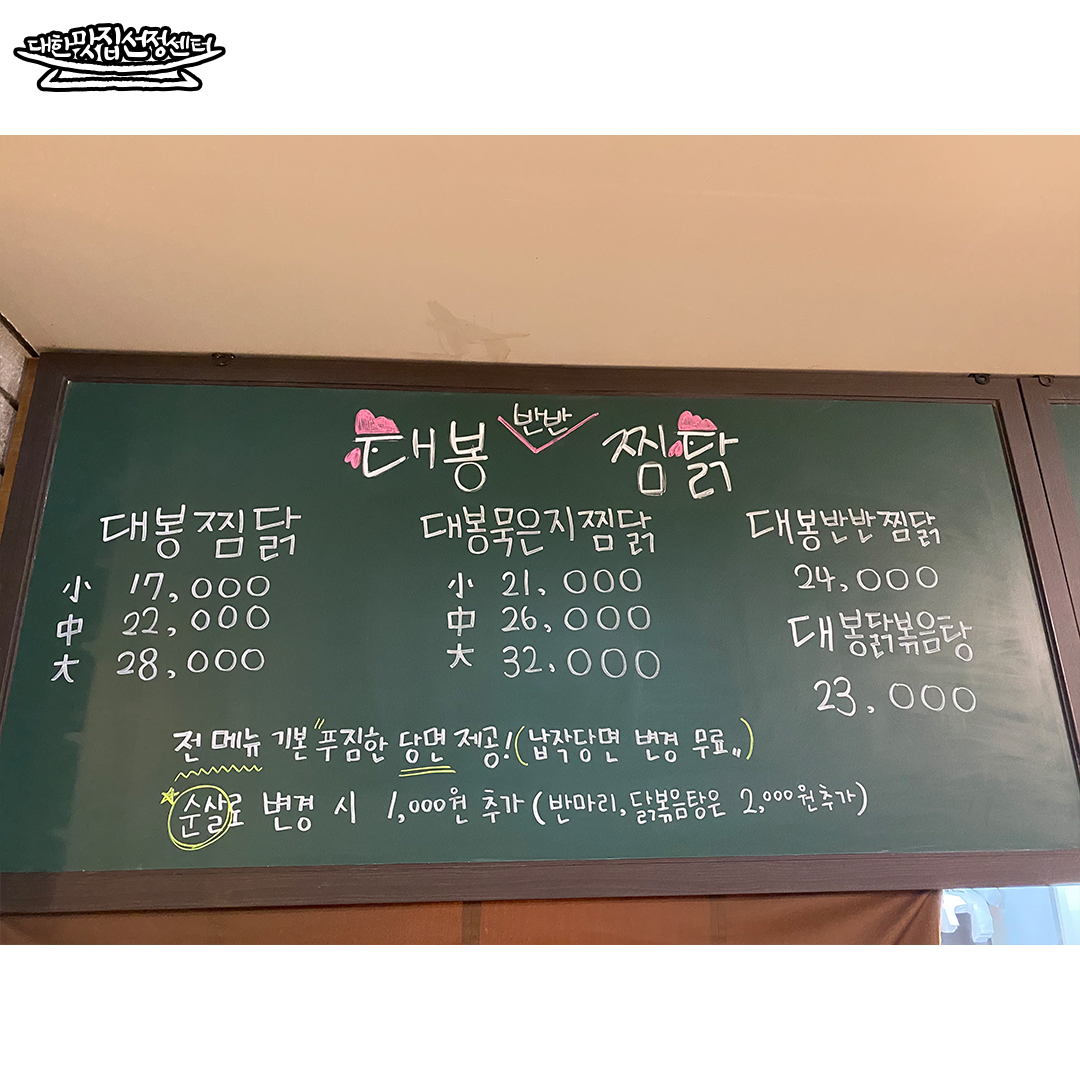 대한맛집선정센터
대봉 반반 찜닭
대봉찜닭
小 17,000
中 22,000
大 28,000
대봉묵은지찜닭
小 21,000
中 26,000
大 32,000
대봉반반찜닭
24,000
대봉닭볶음탕
23,000
전 메뉴 기본 "푸짐한 당면 제공! (납작당면 변경 무료〃)
*순살로 변경 시 1,000원 추가 (반마리, 닭볶음탕은 2,000원추가)